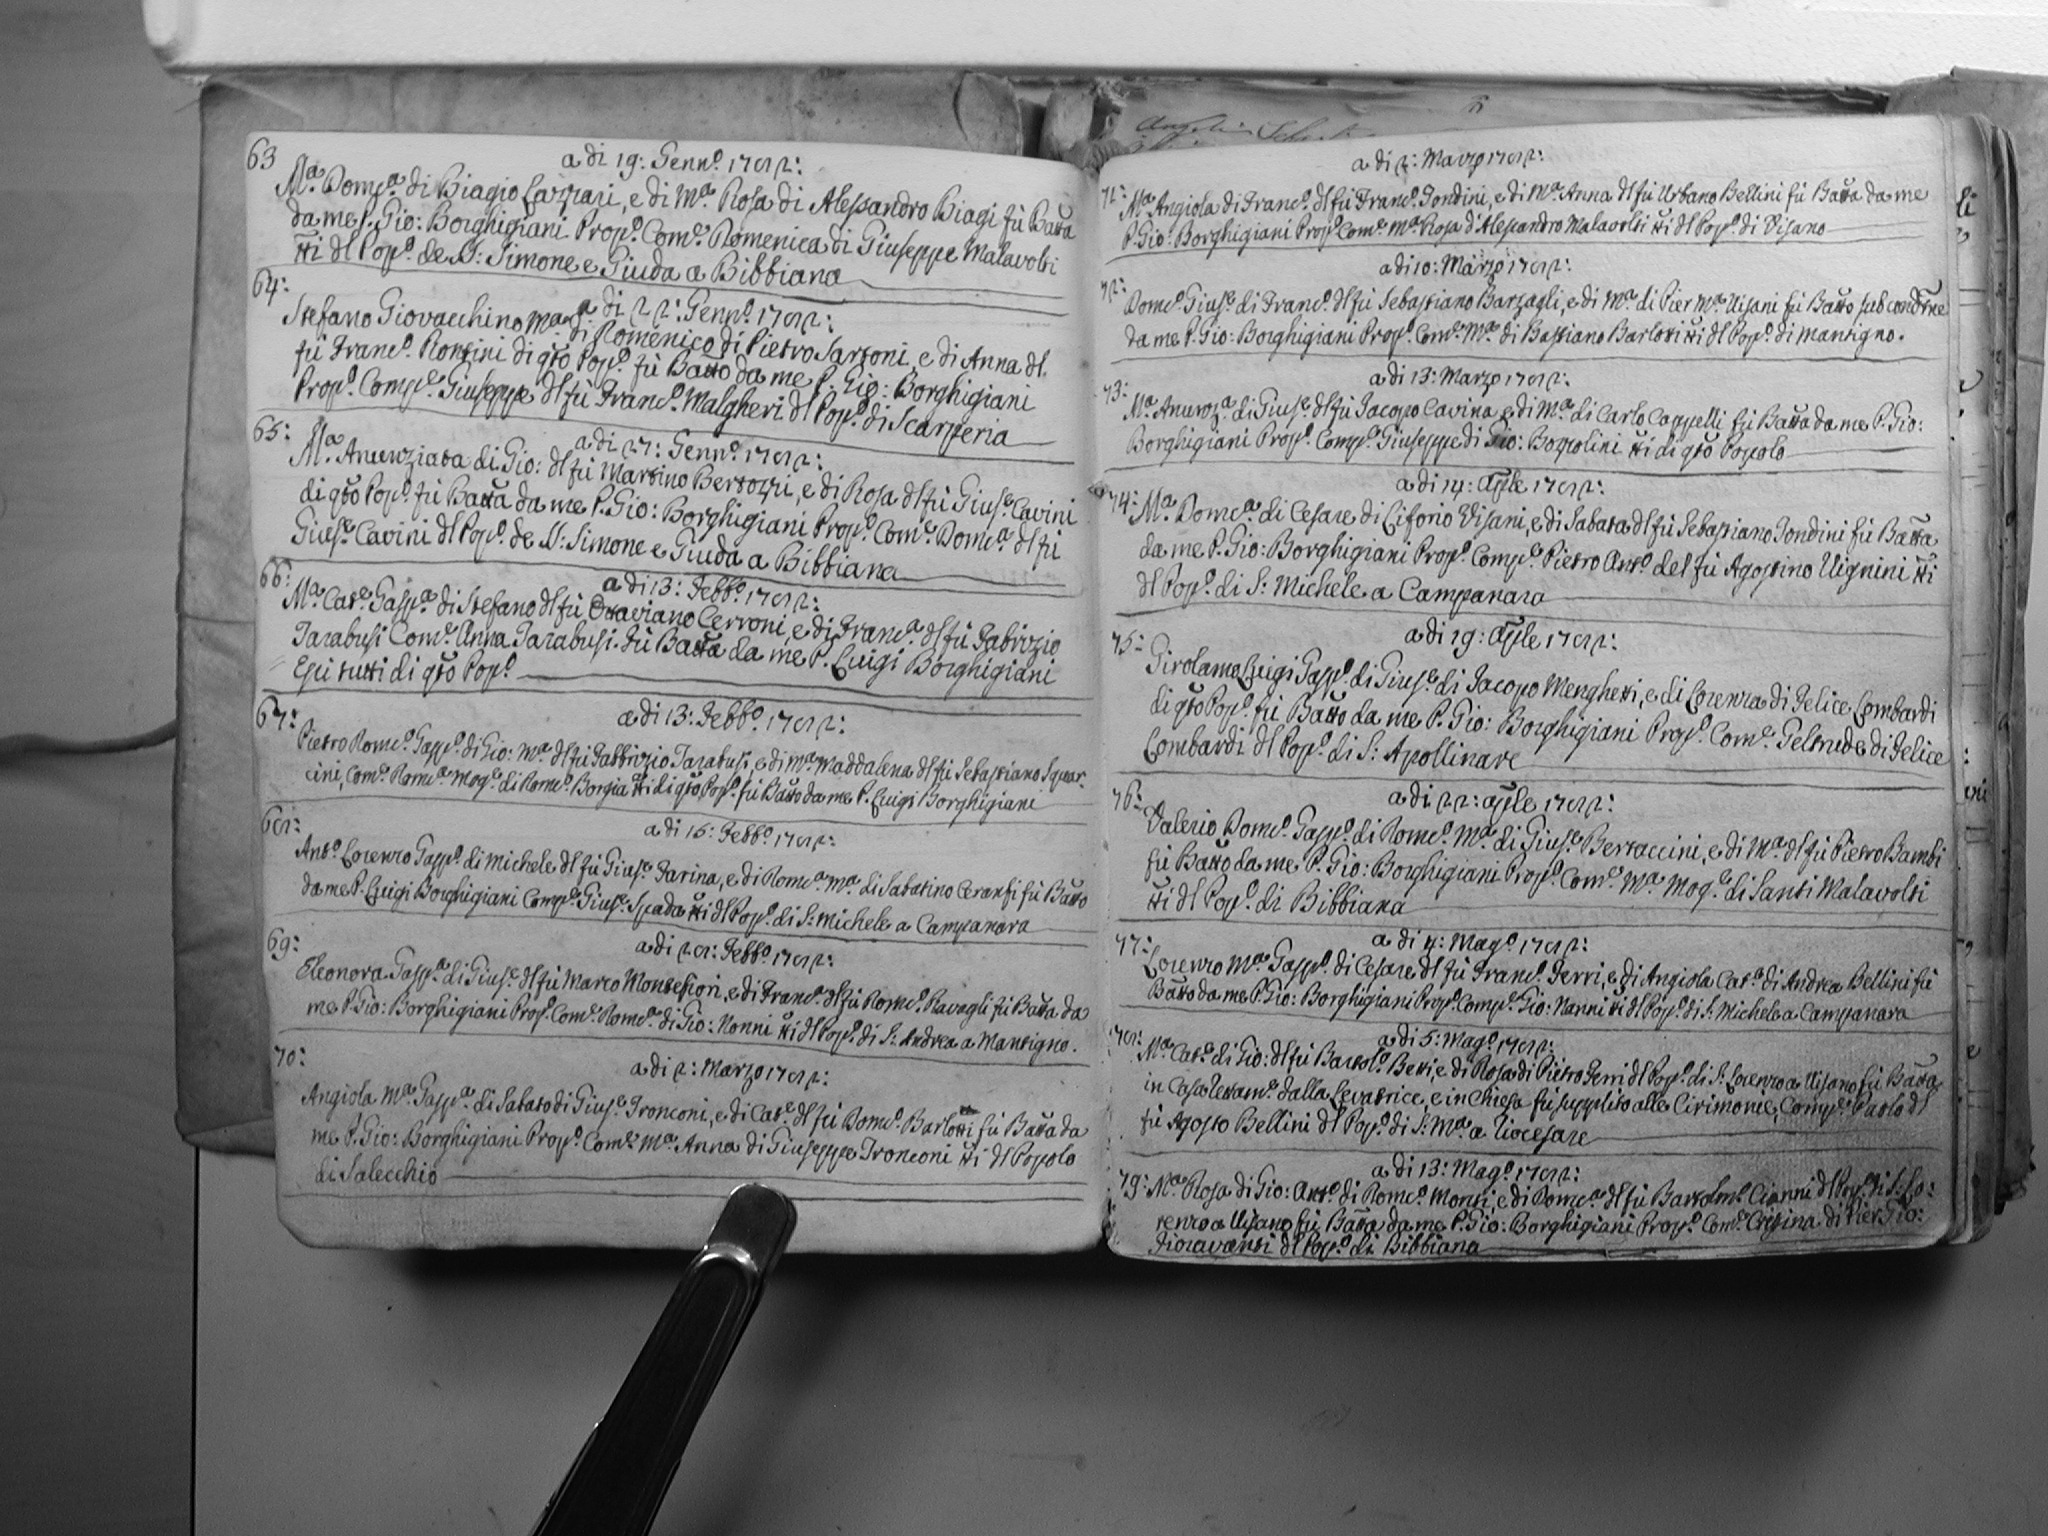 63
a di 19: Genn.o 1782:
M.a Dom.ca di Biagio Lazzari, e di M.a Rosa di Alessandro Biagi fù Batta
da me P. Gio: Borghigiani Prop.o Com.e Domenica di Giuseppe Malavolti
tti dl Pop.o de S: Simone e Giuda a Bibbiana
64:
a di 22: Genn.o 1782:
Stefano Giovacchino M.a di Domenico di Pietro Sartoni, e di Anna dl
fù Franc.o Rontini di qto Pop.o fù Batto da me P. Gio: Borghigiani
Prop.o Comp.e Giuseppe dl fù Franc.o Malgheri dl Pop.o di Scarperia
65:
a di 27: Genn.o 1782:
M.a Anunziata di Gio: dl fù Martino Bertozzi, e di Rosa dl fù Gius.e Cavini
di qto Pop.o fù Batta da me P. Gio: Borghigiani Prop.o Com.e Dom.ca dl fù
Gius.e Cavini dl Pop.o de S: Simone e Giuda a Bibbiana
66:
a di 13: Febb.o 1782:
M.a Cat.e Gasp.a di Stefano dl fù Ottaviano Cerroni, e di Franc.a dl fù Fabrizio
Tarabusi Com.e Anna Tarabusi. fù Batta da me P. Luigi Borghigiani
Esii tutti di qto Pop.o
67:
a di 13: Febb.o 1782:
Pietro Dom.co Gasp.o di Gio: M.a dl fù Fabbrizio Tarabusi, e di M.a Maddalena dl fù Sebastiano Squar-
cini, Com.e Dom.ca Mog.e di Dom.co Borgia tti di qto Pop.o fù Batto da me P. Luigi Borghigiani
68:
a di 16: Febb.o 1782:
Ant.o Lorenzo Gasp.o di Michele dl fù Gius.e Farina, e di Dom.ca M.a di Sabatino Ceranfi fù Batto
da me P. Luigi Borghigiani Comp.e Gius.e Spada tti dl Pop.o di S: Michele a Campanara
69:
a di 28: Febb.o 1782:
Eleonora Gasp.a di Gius.e dl fù Marco Montefiori, e di Franc.a dl fù Dom.co Ravagli fù Batta da
me P. Gio: Borghigiani Prop.o Com.e Dom.ca di Gio: Nonni tti dl Pop.o di S: Andrea a Mantigno.
70:
a di 2: Marzo 1782:
Angiola M.a Gasp.a di Sabato di Gius.e Tronconi, e di Cat.e dl fù Dom.co Barlotti fù Batta da
me P. Gio: Borghigiani Prop.o Com.e M.a Anna di Giuseppe Tronconi tti dl Popolo
di Salecchio
a di 2: Marzo 1782:
71: M.a Angiola di Franc.o dl fù Franc.o Tondini, e di M.a Anna dl fù Urbano Bellini fù Batta da me
P. Gio: Borghigiani Prop.o Com.e M.a Rosa d'Alessandro Malavolti tti dl Pop.o di Visano
a di 10: Marzo 1782:
72: Dom.co Gius.e di Franc.o dl fù Sebastiano Barzagli, e di M.a di Pier M.a Visani fù Batto sub condne
da me P. Gio: Borghigiani Prop.o Com.e M.a di Bastiano Barlotti tti dl Pop.o di Mantigno.
a di 13: Marzo 1782:
73: M.a Anunz.a di Gius.e dl fù Jacopo Cavina, e di M.a di Carlo Cappelli fù Batta da me P. Gio:
Borghigiani Prop.o Comp.e Giuseppe di Gio: Bospolini tti di qto Popolo
a di 14: Aple 1782:
74: M.a Dom.ca di Cesare di Liforio Visani, e di Sabata dl fù Sebastiano Tondini fù Batta
da me P. Gio: Borghigiani Prop.o Comp.e Pietro Ant.o del fù Agostino Vignini tti
dl Pop.o di S: Michele a Campanara
a di 19: Aple 1782:
75: Girolamo Luigi Gasp.o di Gius.e di Jacopo Menghetti, e di Lorenza di Felice Lombardi
di qto Pop.o fù Batto da me P. Gio: Borghigiani Prop.o Com.e Geltrude di Felice
Lombardi dl Pop.o di S: Apollinare
a di 22: aple 1782:
76: Valerio Dom.co Gasp.o di Dom.co M.a di Gius.e Bertaccini, e di M.a dl fù Pietro Bambi
fù Batto da me P. Gio: Borghigiani Prop.o Com.e M.a Mog.e di Santi Malavolti
tti dl Pop.o di Bibbiana
a di 4: Mag.o 1782:
77: Lorenzo M.a Gasp.o di Cesare dl fù Franc.o Ferri, e di Angiola Cat.a di Andrea Bellini fù
Batto da me P. Gio: Borghigiani Prop.o Comp.e Gio: Nanni tti dl Pop.o di S: Michele a Campanara
a di 5: Mag.o 1782:
78: M.a Cat.e di Gio: dl fù Bartol.o Betti, e di Rosa di Pietro Ferri dl Pop.o di S: Lorenzo a Visano fù Batta
in Casa Tettam.e dalla Levatrice, e in Chiesa fù supplito alle Cirimonie, Comp.e Paolo dl
fù Agosto Bellini dl Pop.o di S: M.a a Tiocesare
a di 13: Mag.o 1782:
79: M.a Rosa di Gio: Ant.o di Dom.co Monti, e di Dom.ca dl fù Bartolm.o Cianni dl Pop.o di S: Lo:
renzo a Visano fù Batta da me P. Gio: Borghigiani Prop.o Com.e Cristina di Pier Gio:
Fioravanti dl Pop.o di Bibbiana